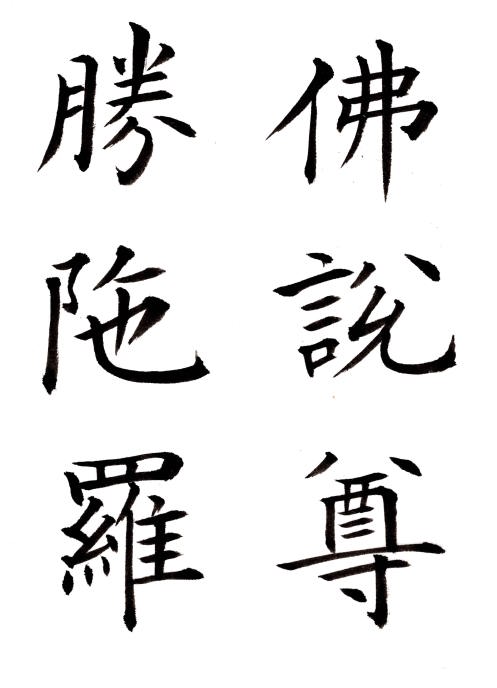 佛説尊
勝陁羅